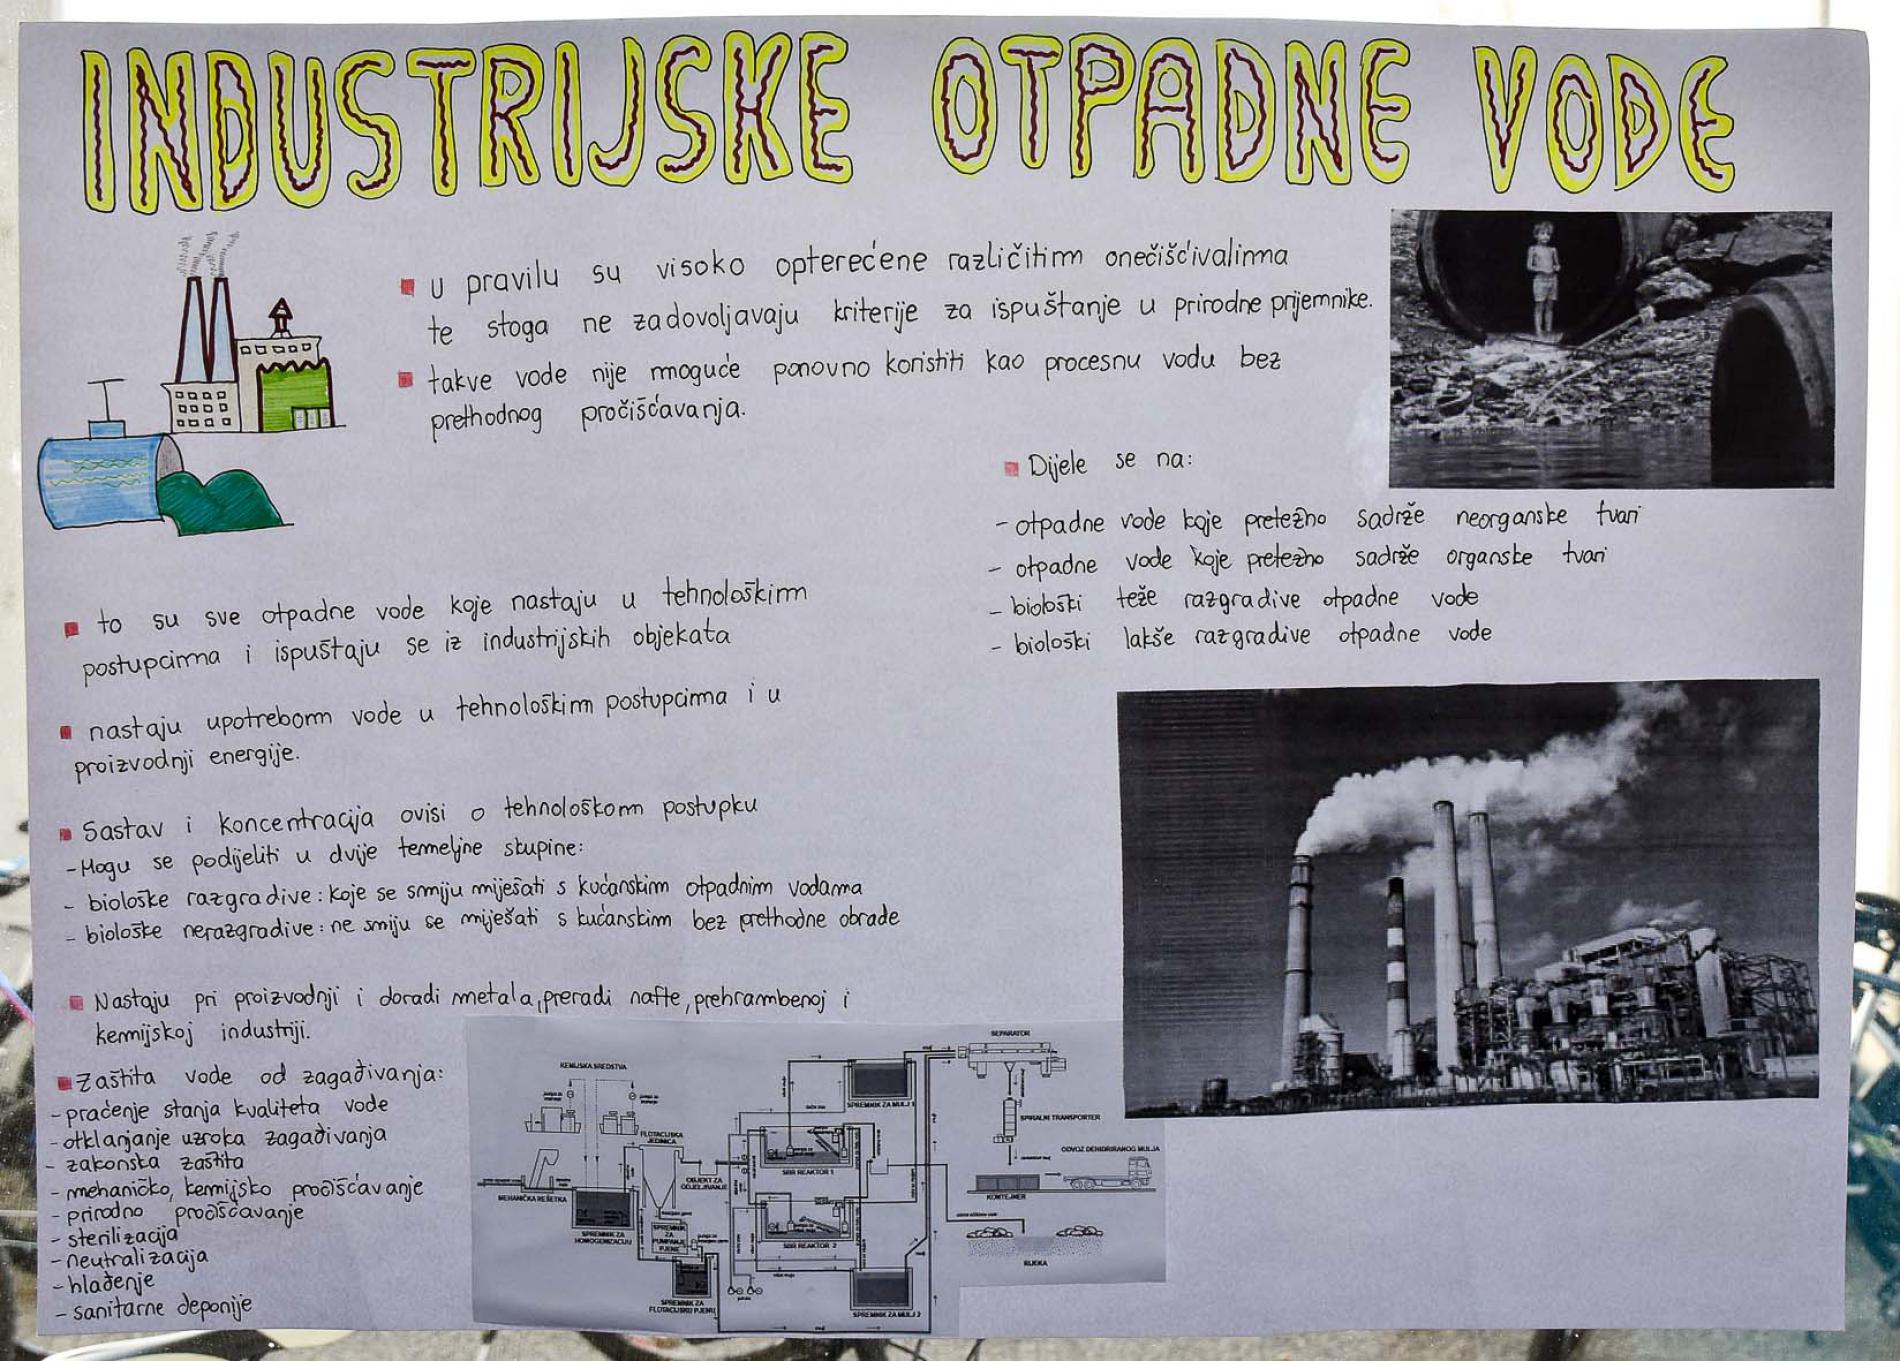 INDUSTRIJSKE OTPADNE VODE
u pravilu su visoko opterećene različitim onečišćivalima
te stoga ne zadovoljavaju kriterije za ispuštanje u prirodne prijemnike.
takve vode nije moguće ponovno koristiti kao procesnu vodu bez
prethodnog pročišćavanja.
Dijele se na:
- otpadne vode koje pretežno sadrže neorganske tvari
- otpadne vode koje pretežno sadrže organske tvari
- biološki teže razgradive otpadne vode
- biološki lakše razgradive otpadne vode
to su sve otpadne vode koje nastaju u tehnološkim
postupcima i ispuštaju se iz industrijskih objekata
nastaju upotrebom vode u tehnološkim postupcima i u
proizvodnji energije.
Sastav i koncentracija ovisi o tehnološkom postupku
- Mogu se podijeliti u dvije temeljne skupine:
- biološke razgradive: koje se smiju miješati s kućanskim otpadnim vodama
- biološke nerazgradive: ne smiju se miješati s kućanskim bez prethodne obrade
Nastaju pri proizvodnji i doradi metala, preradi nafte, prehrambenoj i
kemijskoj industriji.
Zaštita vode od zagađivanja:
- praćenje stanja kvaliteta vode
- otklanjanje uzroka zagađivanja
- zakonska zaštita
- mehaničko, kemijsko pročišćavanje
- prirodno pročišćavanje
- sterilizacija
- neutralizacija
- hlađenje
- sanitarne deponije
KEMIJSKA SREDSTVA
FLOTACIJSKA
JEDINICA
MEHANIČKA REŠETKA
SPREMNIK ZA
HOMOGENIZACIJU
SPREMNIK
ZA
PUMPANJE
PJENE
SPREMNIK ZA
FLOTACIJSKU PJENU
OBJEKT ZA
ODJELJIVANJE
SBR REAKTOR 1
SBR REAKTOR 2
SPREMNIK ZA MULJ 1
SPREMNIK ZA MULJ 2
SEPARATOR
SPIRALNI TRANSPORTER
ODVOZ DEHIDRIRANOG MULJA
KONTEJNER
RIJEKA